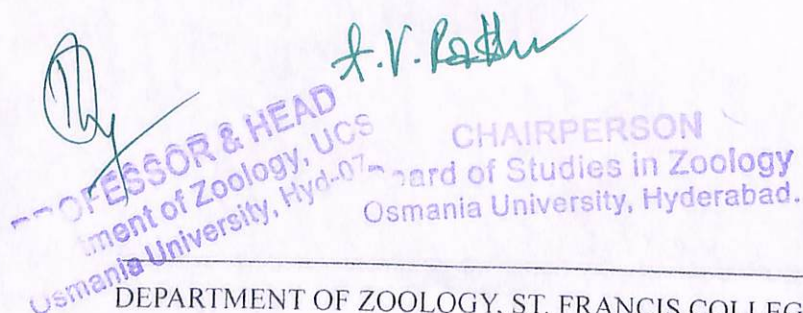 PROFESSOR & HEAD
tment of Zoology, UCS
Osmania University, Hyd-07
CHAIRPERSON
ard of Studies in Zoology
Osmania University, Hyderabad.
DEPARTMENT OF ZOOLOGY, ST. FRANCIS COLLEG